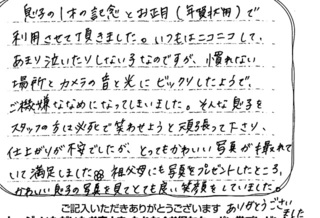 息子の1才の記念とお正月(年賀状用)で
利用させて頂きました。いつもはニコニコして、
あまり泣いたりしない子なのですが、慣れない
場所とカメラの音と光にビックリしたようで、
ご機嫌ななめになってしまいました。そんな息子を
スタッフの方は必死で笑わせようと頑張って下さり、
仕上がりが不安でしたが、とってもかわいい写真が撮れて
いて満足しました。祖父母にも写真をプレゼントしたところ、
かわいい息子の写真を見てとても良い笑顔をしていました。
ご記入いただきありがとうございます ありがとうござい
ました